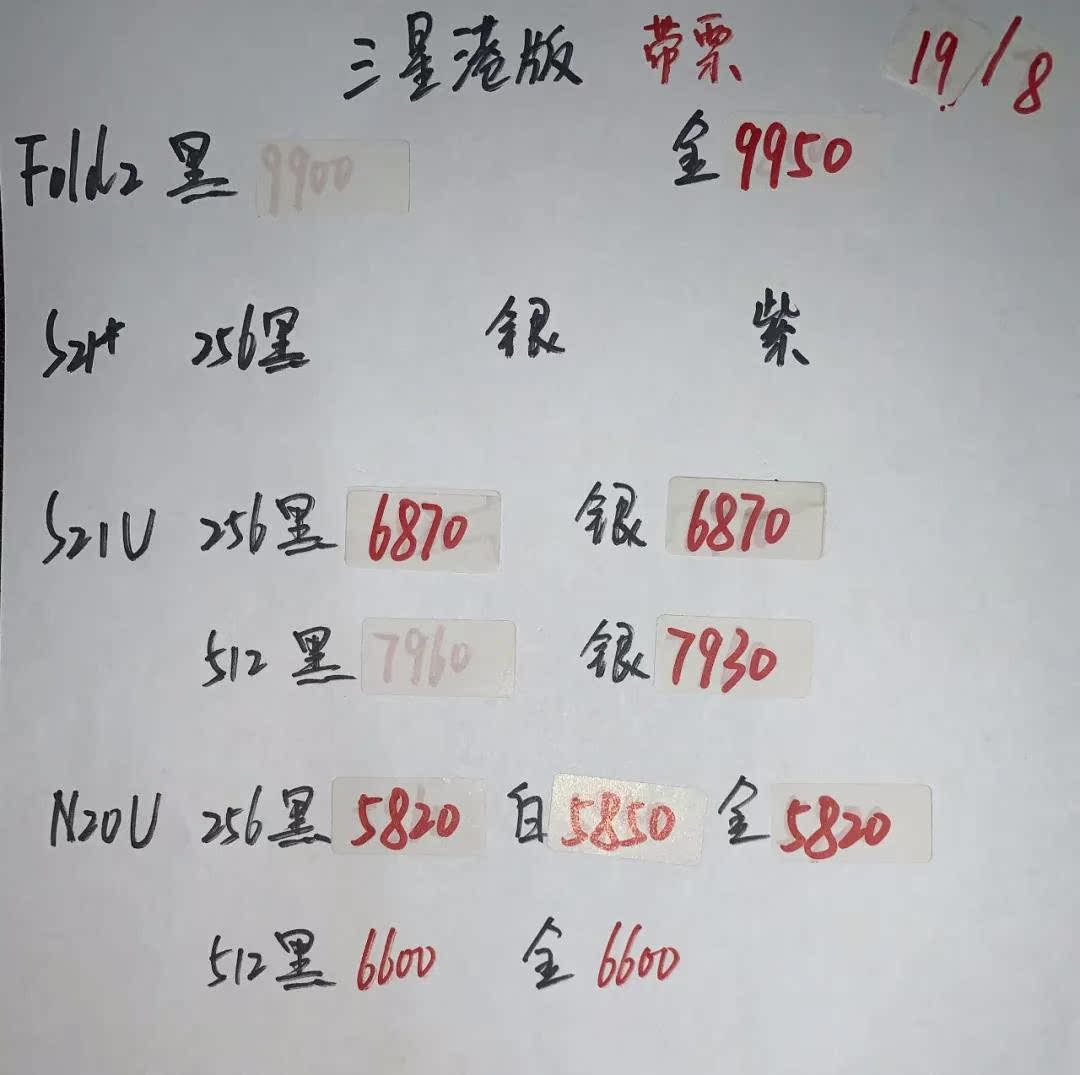 三星港版 带票 19/8
Fold2 黑 9900 金 9950
S21+ 256黑 银 紫
S21U 256黑 6870 银 6870
512 黑 7960 银 7930
N20U 256黑 5820 白 5850 金 5820
512黑 6600 金 6600